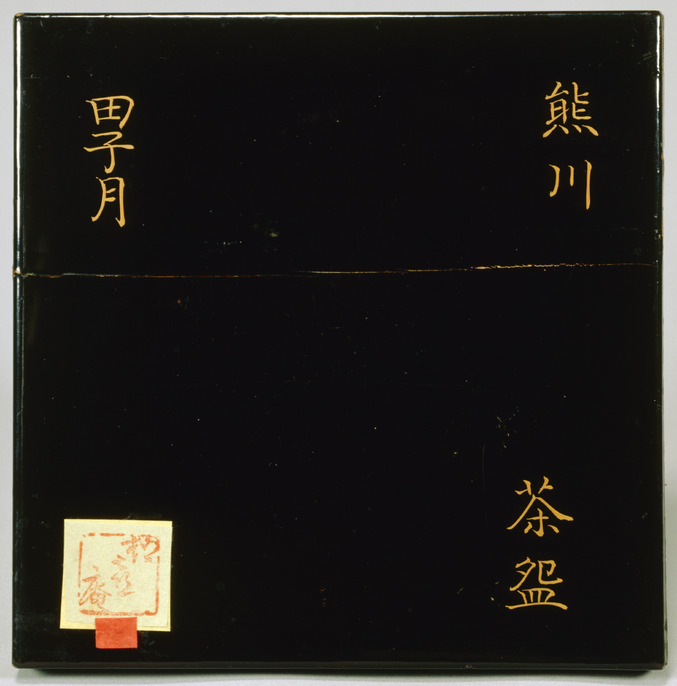 熊川
茶盌
田子月
庵